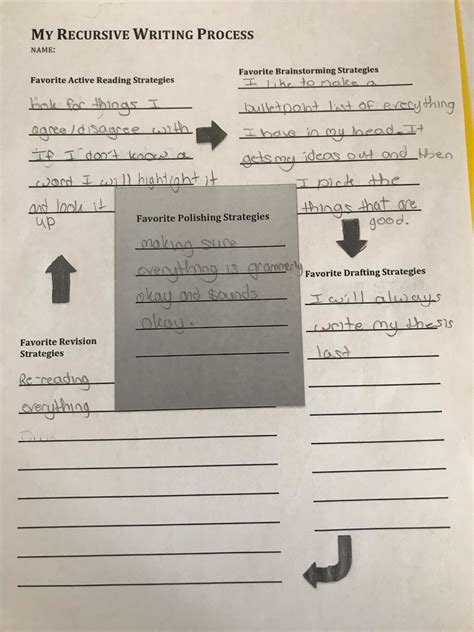 MY RECURSIVE WRITING PROCESS
NAME:
Favorite Active Reading Strategies
look for things I
agree/disagree with
If I don't know a
word I will highlight it
and look it
up
Favorite Brainstorming Strategies
I like to make a
bulletpoint list of everything
I have in my head. It
gets my ideas out and then
I pick the
things that are
good.
Favorite Polishing Strategies
making sure
everything is grammerly
okay and sounds
okay.
Favorite Drafting Strategies
I will always
write my thesis
last
Favorite Revision
Strategies
Re-reading
everything